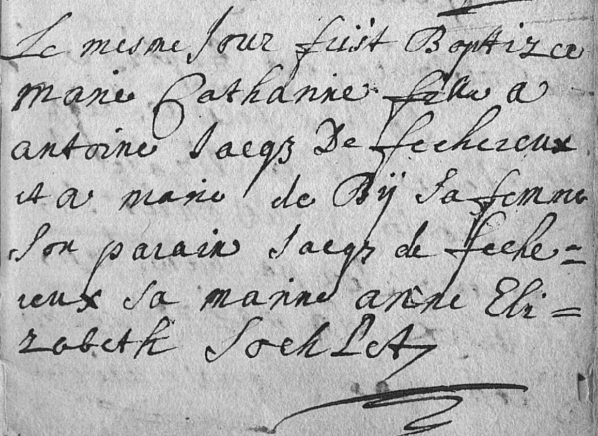 Le mesme Jour fust Baptizee
marie Catharine fille a
antoine Jacqz De fechereux
et a marie de Bÿ Sa femme
Son parain Jacqz de feche=
reux sa marine anne Eli=
zabeth Sochlet